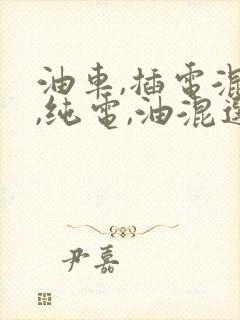 油車,插電混
,純電,油混選
尹嘉